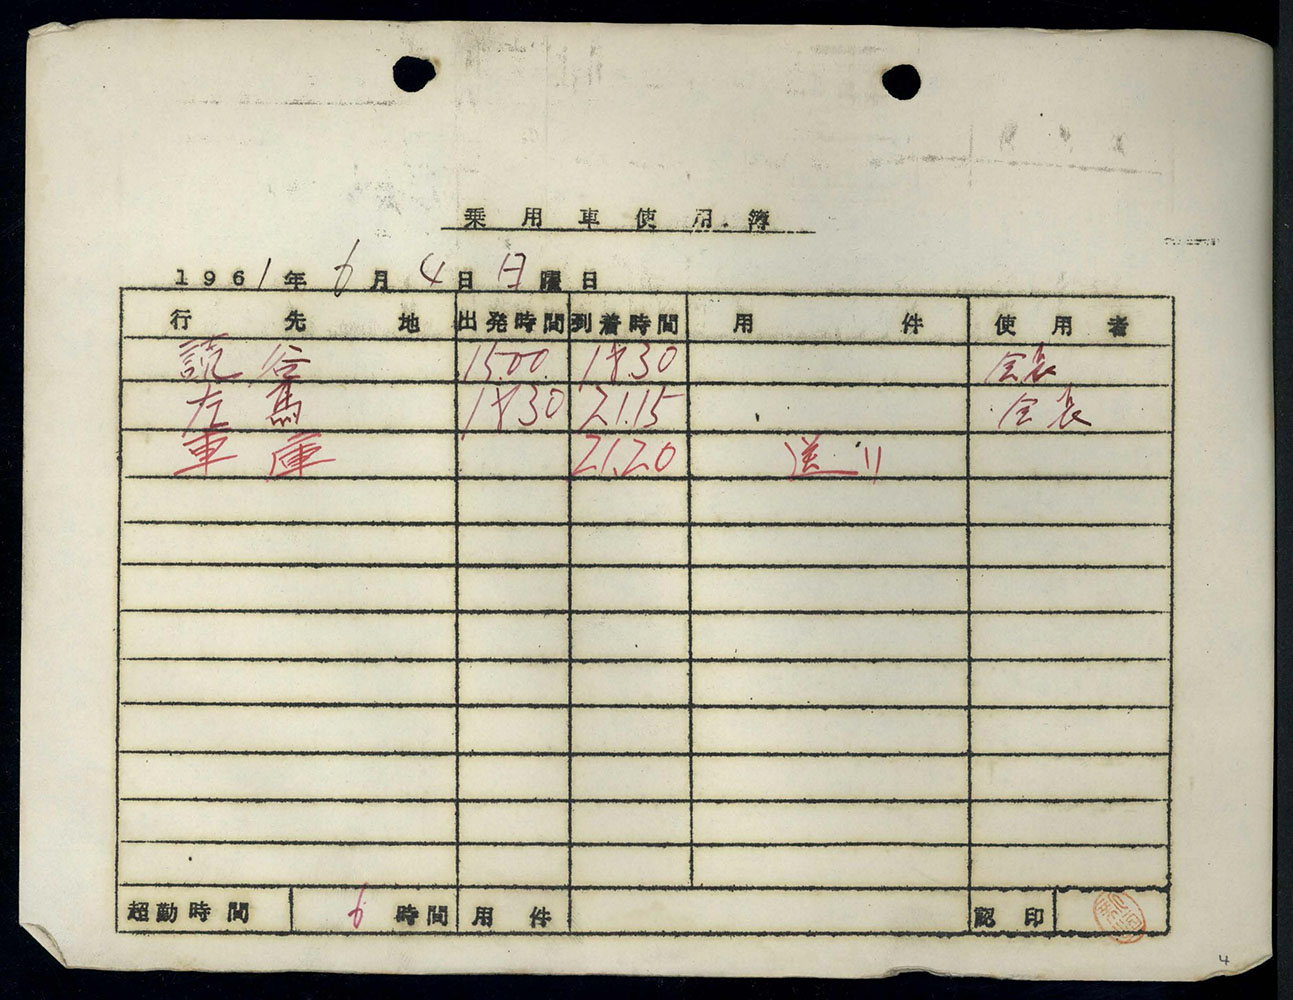 乗用車使用簿
1961年 6月 4日 日曜日
行先地 出発時間 到着時間 用件 使用者
読谷 15.00 18.30 会長
左馬 18.30 21.15 会長
車庫 21.20 送り
超勤時間 6時間 用件 認印
4